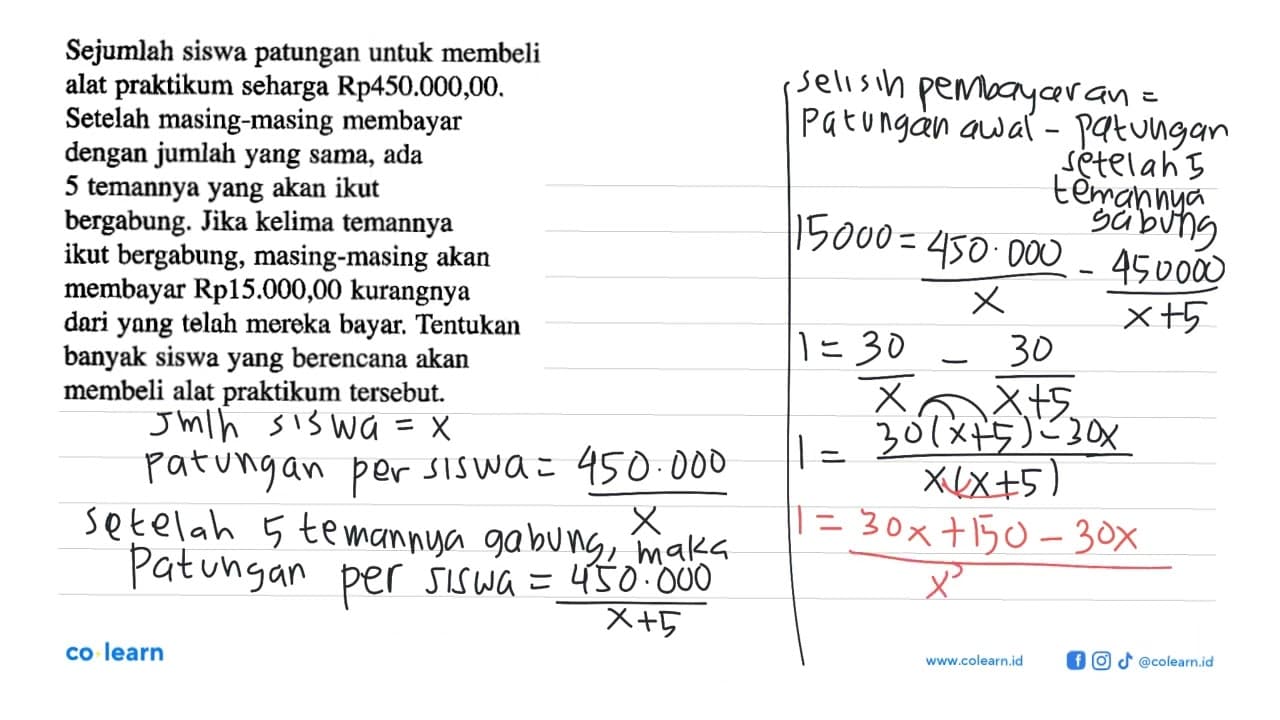 Sejumlah siswa patungan untuk membeli
alat praktikum seharga Rp450.000,00.
Setelah masing-masing membayar
dengan jumlah yang sama, ada
5 temannya yang akan ikut
bergabung. Jika kelima temannya
ikut bergabung, masing-masing akan
membayar Rp15.000,00 kurangnya
dari yang telah mereka bayar. Tentukan
banyak siswa yang berencana akan
membeli alat praktikum tersebut.
Jmlh siswa = x
Patungan per siswa = 450.000
x
Setelah 5 temannya gabung, maka
Patungan per siswa = 450.000
x+5
selisih pembayaran =
Patungan awal - patungan
setelah 5
temannya
gabung
15000 = 450.000 - 450000
x x+5
1 = 30 - 30
x x+5
1 = 30(x+5) - 30x
x(x+5)
1 = 30x + 150 - 30x
x
co learn
www.colearn.id
@colearn.id